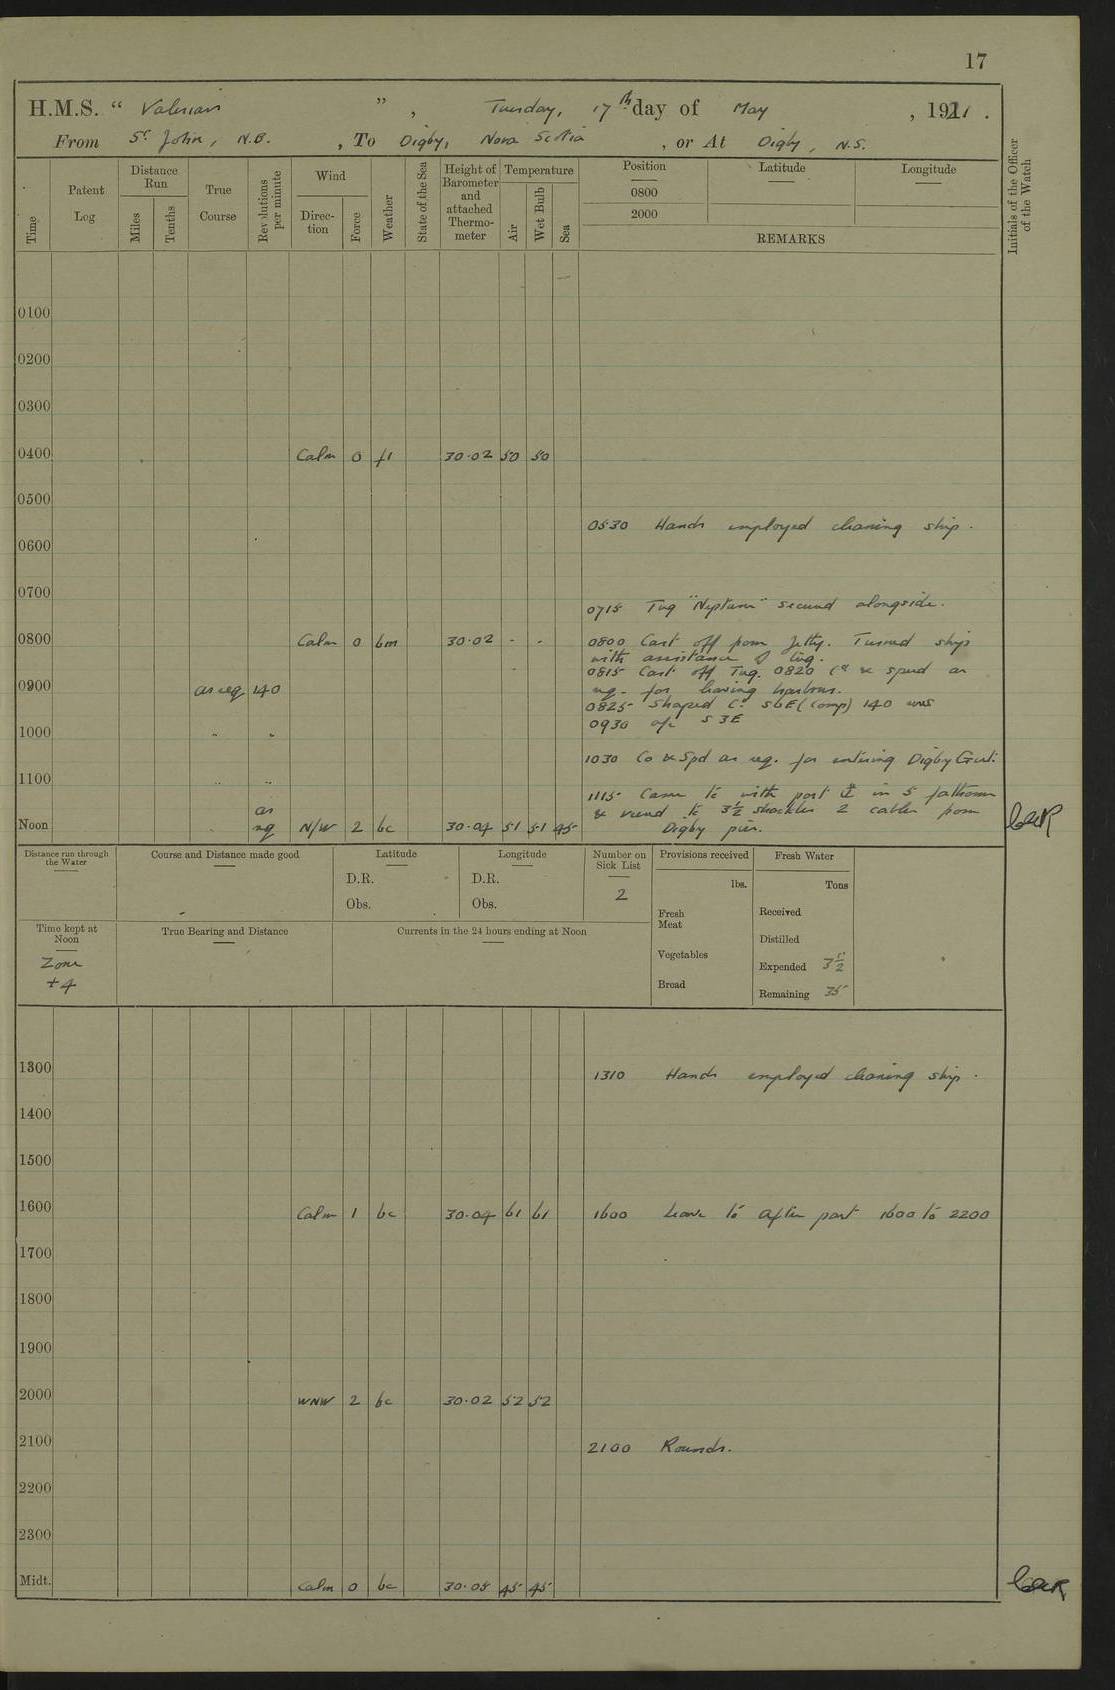 17
H.M.S. “ Valerian ” , Tuesday, 17th day of May , 1921 .
From St John, N.B. , To Digby, Nova Scotia , or At Digby, N.S.
Time
Patent Log
Distance Run
Miles
Tenths
True Course
Revolutions per minute
Wind
Direction
Force
Weather
State of the Sea
Height of Barometer and attached Thermometer
Temperature
Air
Wet Bulb
Sea
Position
0800
2000
Latitude
Longitude
REMARKS
Initials of the Officer of the Watch
0100
0200
0300
0400 Calm 0 f1 30.02 50 50
0500
0530 Hands employed cleaning ship.
0600
0700
0715 Tug "Neptune" secured alongside.
0800 Calm 0 bm 30.02 - - 0800 Cast off from Jetty. Turned ship
with assistance of tug.
0815 Cast off Tug. 0820 Co & speed as
0900 as req 140 req. for leaving harbour.
0825 Shaped Co S6E (Comp) 140 revs
0930 a/c S3E
1000 " "
1030 Co & Spd as req. for entering Digby Gut.
1100 " "
1115 Came to with port ⚓ in 5 fathoms
& veered to 3½ shackles 2 cables from
Digby pier.
Noon as req N/W 2 bc 30.04 51 51 45
Distance run through the Water
Course and Distance made good
Latitude
D.R.
Obs.
Longitude
D.R.
Obs.
Number on Sick List
2
Provisions received
lbs.
Fresh Meat
Vegetables
Bread
Fresh Water
Tons
Received
Distilled
Expended 3½
Remaining 35
Time kept at Noon
Zone
+4
True Bearing and Distance
Currents in the 24 hours ending at Noon
1300
1310 Hands employed cleaning ship.
1400
1500
1600 Calm 1 bc 30.04 61 61 1600 Leave to after part 1600 to 2200
1700
1800
1900
2000 WNW 2 bc 30.02 52 52
2100 2100 Rounds.
2200
2300
Midt. Calm 0 bc 30.05 45 45